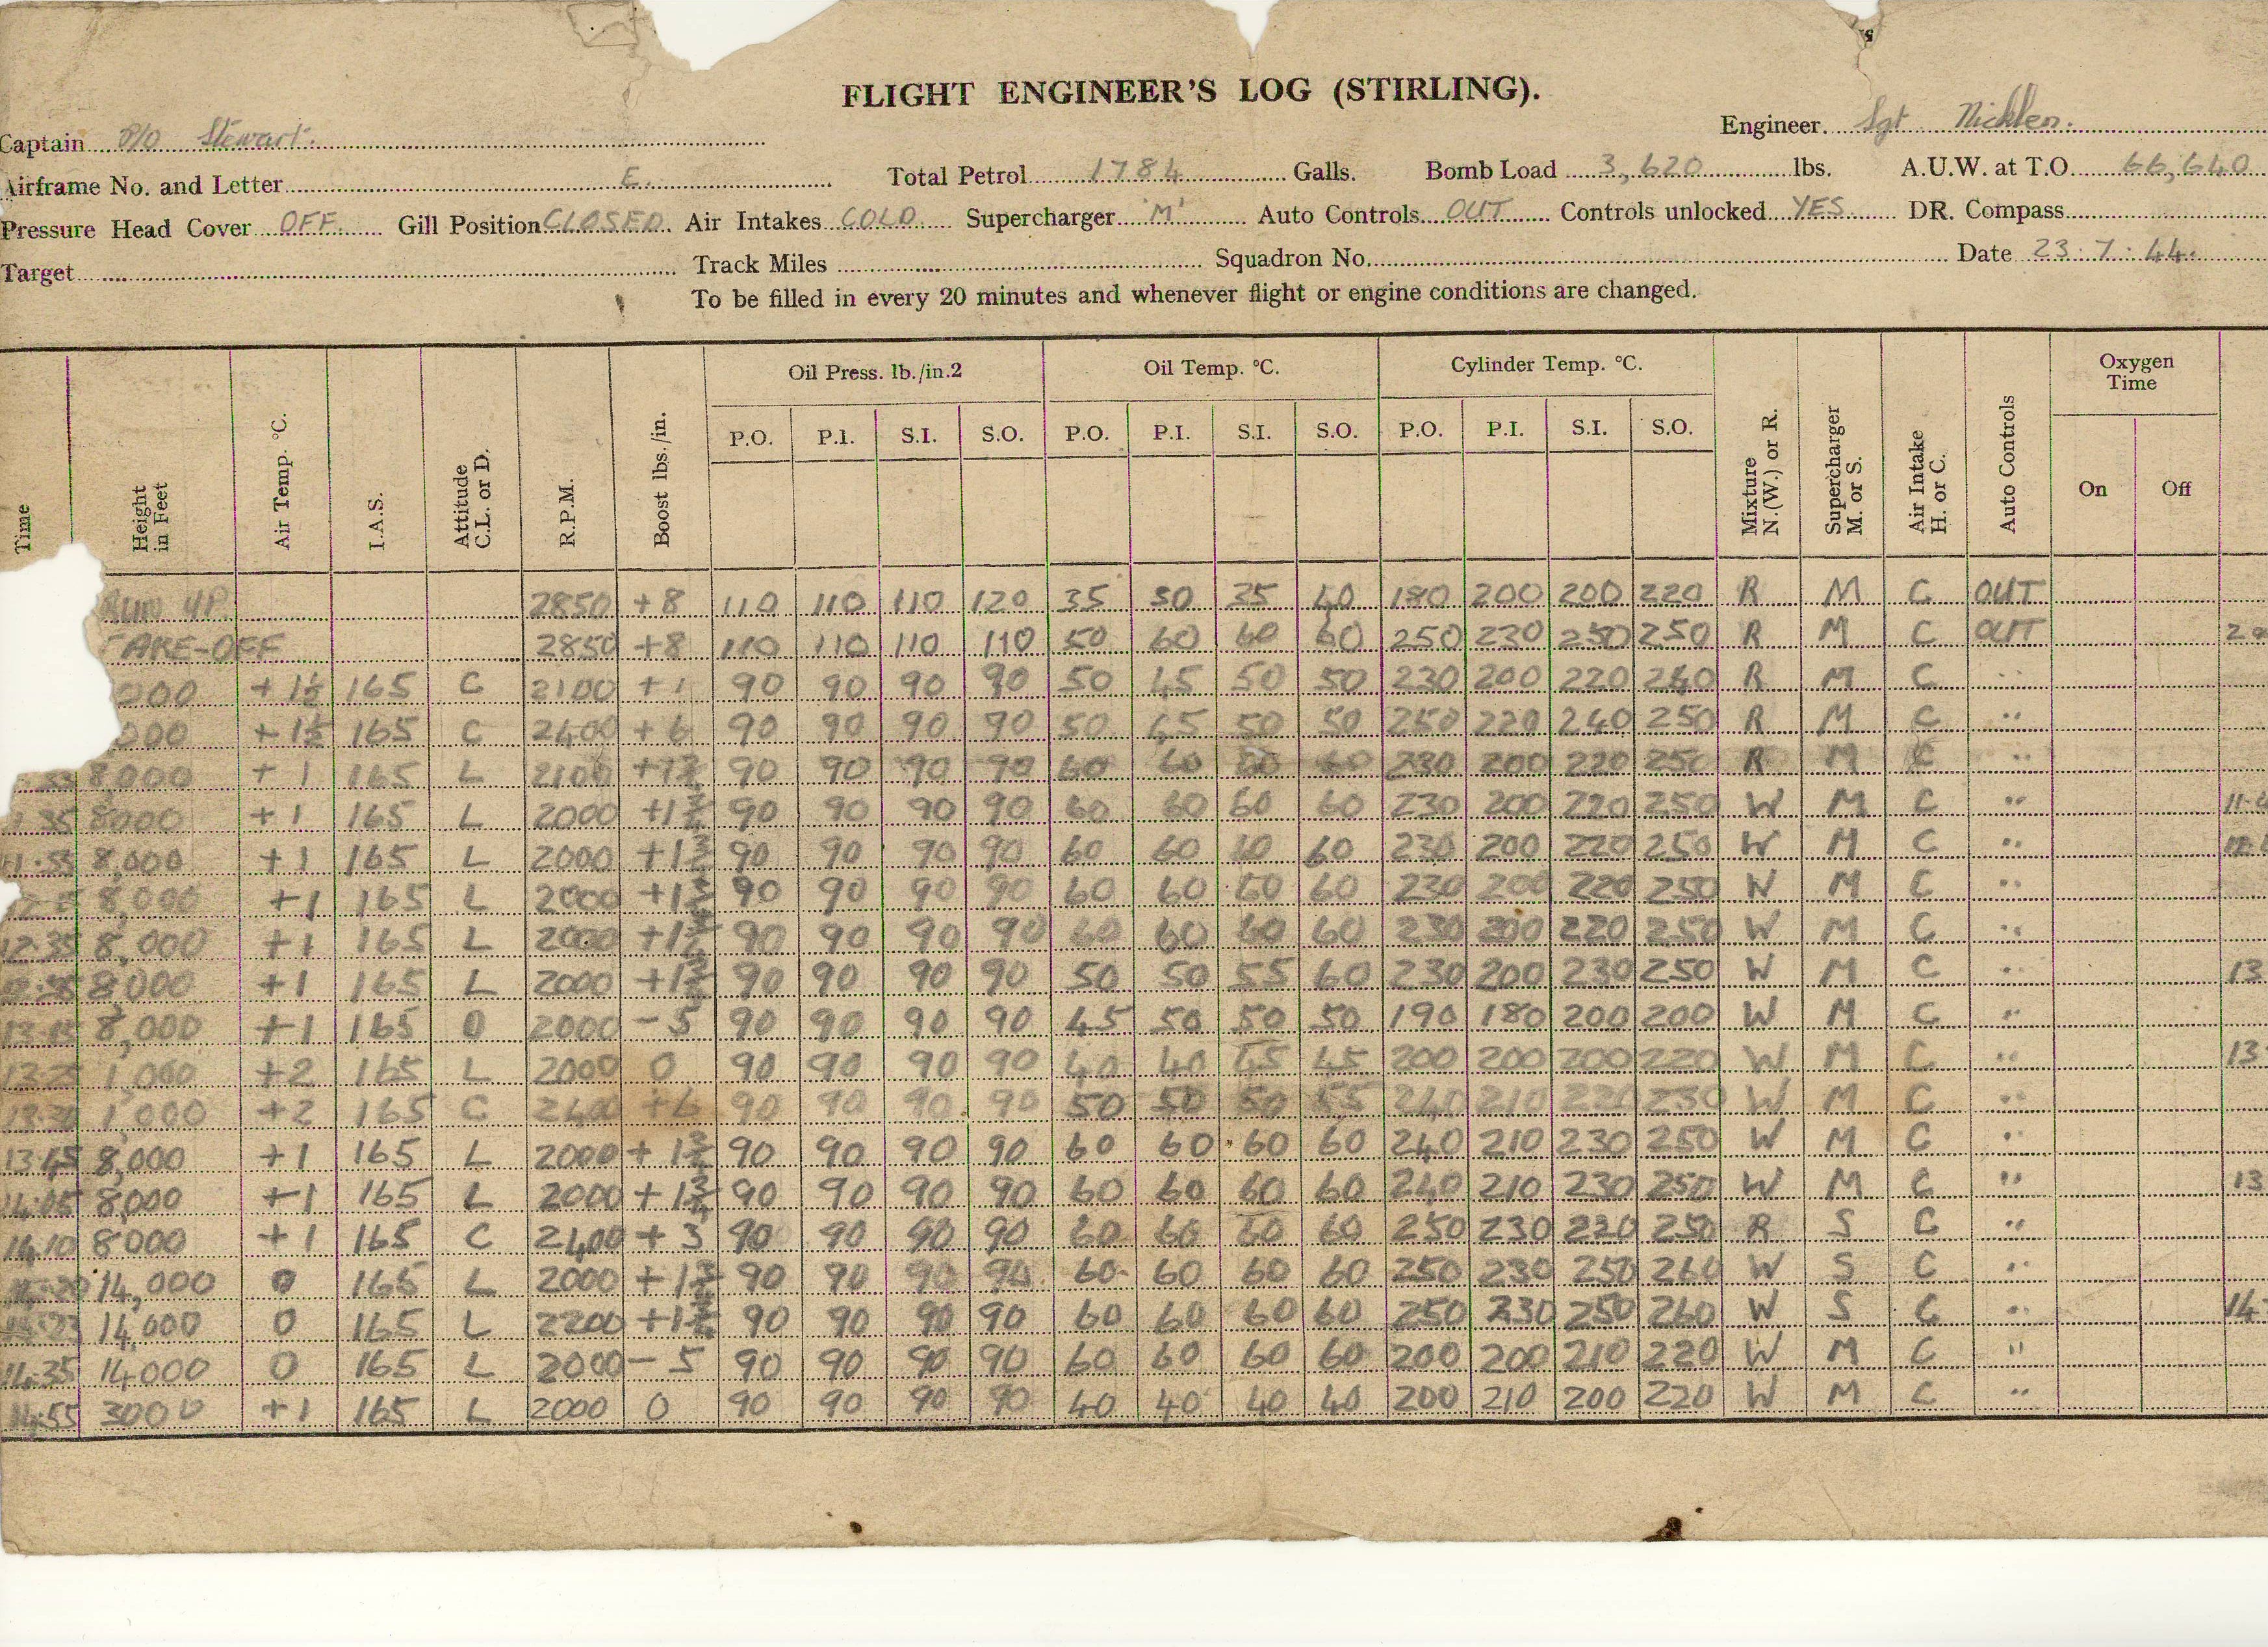 FLIGHT ENGINEER'S LOG (STIRLING).
Captain P/O Stewart. Engineer Sgt Nicklen.
Airframe No. and Letter E. Total Petrol 1784 Galls. Bomb Load 3,620 lbs. A.U.W. at T.O. 66,640
Pressure Head Cover OFF. Gill Position CLOSED. Air Intakes COLD Supercharger 'M' Auto Controls OUT Controls unlocked YES DR. Compass
Target Track Miles Squadron No. Date 23.7.44.
To be filled in every 20 minutes and whenever flight or engine conditions are changed.
Oil Press. lb./in.2 Oil Temp. °C. Cylinder Temp. °C. Oxygen Time
Time Height in Feet Air Temp. °C. I.A.S. Attitude C.L. or D. R.P.M. Boost lbs./in. P.O. P.I. S.I. S.O. P.O. P.I. S.I. S.O. P.O. P.I. S.I. S.O. Mixture N.(W.) or R. Supercharger M. or S. Air Intake H. or C. Auto Controls On Off
RUN UP 2850 +8 110 110 110 120 35 30 35 40 190 200 200 220 R M C OUT
TAKE-OFF 2850 +8 110 110 110 110 50 60 60 60 250 230 250 250 R M C OUT
000 +1½ 165 C 2100 +1 90 90 90 90 50 45 50 50 230 200 220 240 R M C "
000 +1½ 165 C 2400 +6 90 90 90 90 50 45 50 50 250 220 240 250 R M C "
8,000 +1 165 L 2100 +1¾ 90 90 90 90 60 60 60 60 230 200 220 250 R M C "
35 8000 +1 165 L 2000 +1¾ 90 90 90 90 60 60 60 60 230 200 220 250 W M C "
11.55 8,000 +1 165 L 2000 +1¾ 90 90 90 90 60 60 60 60 230 200 220 250 W M C "
8,000 +1 165 L 2000 +1¾ 90 90 90 90 60 60 60 60 230 200 220 250 W M C "
12.35 8,000 +1 165 L 2000 +1¾ 90 90 90 90 60 60 60 60 230 200 220 250 W M C "
8,000 +1 165 L 2000 +1¾ 90 90 90 90 50 50 55 60 230 200 230 250 W M C " 13
8,000 +1 165 D 2000 -5 90 90 90 90 45 50 50 50 190 180 200 200 W M C "
13.25 1,000 +2 165 L 2000 0 90 90 90 90 40 40 45 45 200 200 200 220 W M C " 13
1,000 +2 165 C 2400 +6 90 90 90 90 50 50 50 55 240 210 220 230 W M C "
13.45 8,000 +1 165 L 2000 +1¾ 90 90 90 90 60 60 60 60 240 210 230 250 W M C "
14.05 8,000 +1 165 L 2000 +1¾ 90 90 90 90 60 60 60 60 240 210 230 250 W M C " 13
14.10 8000 +1 165 C 2400 +3 90 90 90 90 60 60 60 60 250 230 230 250 R S C "
14,000 0 165 L 2000 +1¾ 90 90 90 90 60 60 60 60 250 230 250 260 W S C "
14,000 0 165 L 2200 +1¾ 90 90 90 90 60 60 60 60 250 230 250 260 W S C " 14
14.35 14,000 0 165 L 2000 -5 90 90 90 90 60 60 60 60 200 200 210 220 W M C "
14.55 3000 +1 165 L 2000 0 90 90 90 90 40 40 40 40 200 210 200 220 W M C "